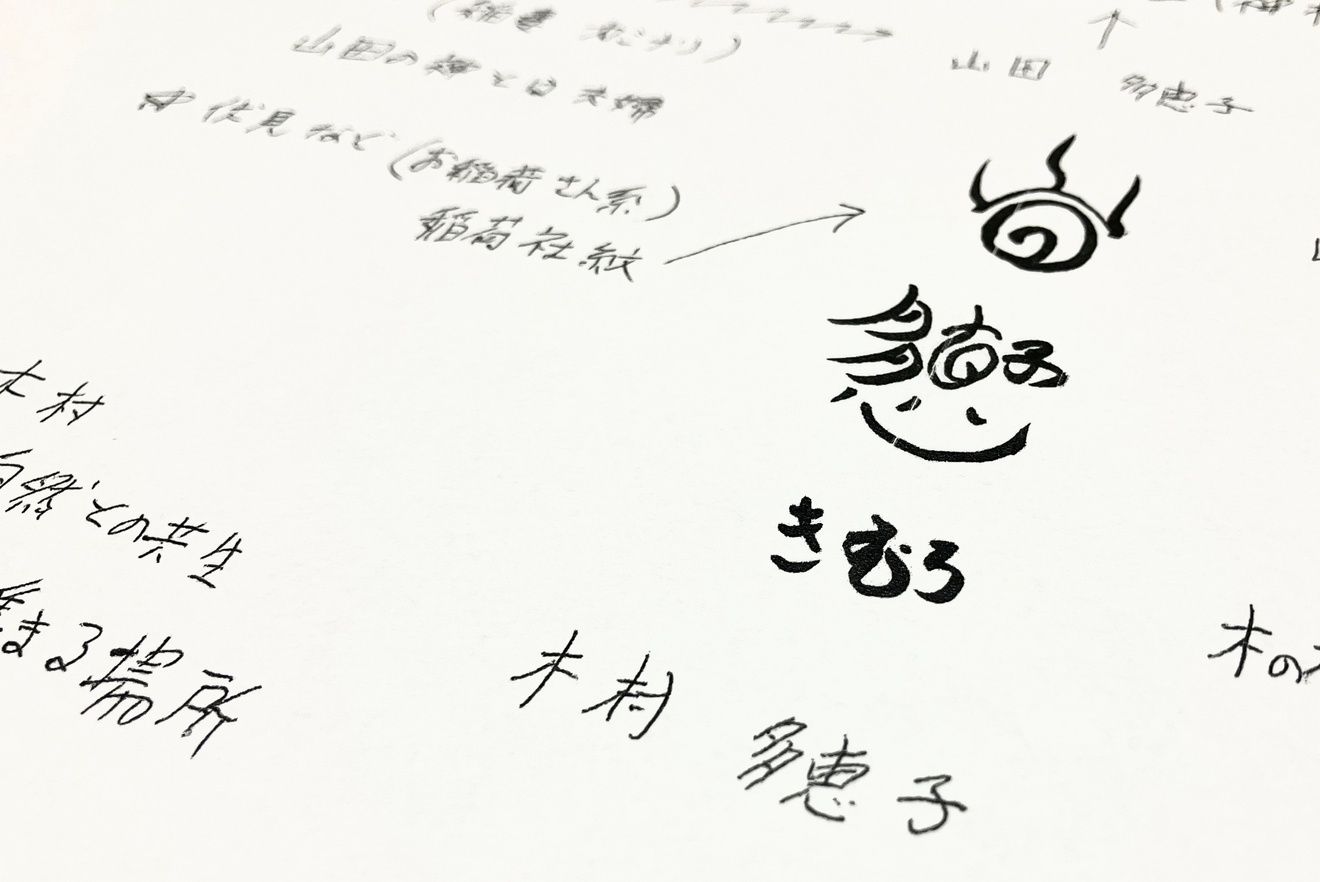 山田の神と日夫婦
伏見など(お稲荷さん系)
稲荷社紋
山田
多恵子
多恵子
きむら
木村
自然との共生
まる場所
木村
多恵子
木の